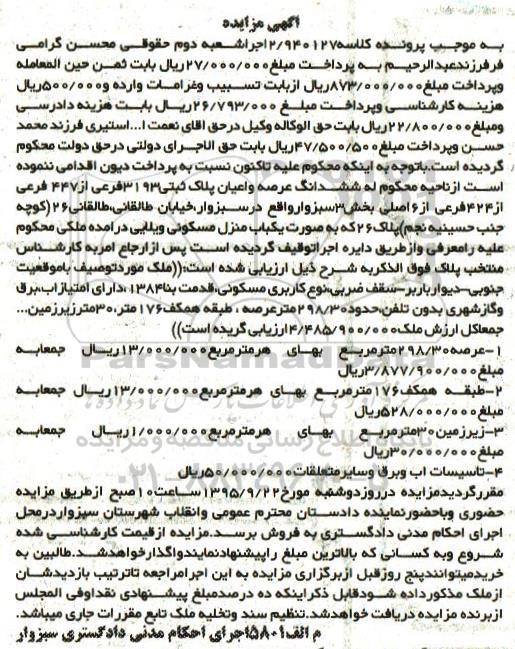 آگهی مزایده
به موجب پرونده کلاسه ۲/۹۴۰۱۲۷اجراشعبه دوم حقوقی محسن گرامی
فرفرزندعبدالرحیم به پرداخت مبلغ۲۷/۰۰۰/۰۰۰ریال بابت ثمن حین المعامله
وپرداخت مبلغ۸۷۳/۰۰۰/۰۰۰ریال ازبابت تسبیب وغرامات وارده و۵۰۰/۰۰۰ریال
هزینه کارشناسی وپرداخت مبلغ ۲۶/۷۹۳/۰۰۰ریال بابت هزینه دادرسی
ومبلغ۲۲/۸۰۰/۰۰۰ریال بابت حق الوکاله وکیل درحق اقای نعمت ا...استیری فرزند محمد
حسن وپرداخت مبلغ۴۷/۵۰۰/۵۰۰ریال بابت حق الاجرای دولتی درحق دولت محکوم
گردیده است.باتوجه به اینکه محکوم علیه تاکنون نسبت به پرداخت دیون اقدامی ننموده
است ازناحیه محکوم له ششدانگ عرصه واعیان پلاک ثبتی۳۱۹۳فرعی از۴۴۷ فرعی
از۴۲۴فرعی از۶اصلی بخش۳سبزوارواقع درسبزوار،خیابان طالقانی،طالقانی۲۶(کوچه
جنب حسینیه نجم)پلاک۲۶که به صورت یکباب منزل مسکونی ویلایی درامده ملکی محکوم
علیه رامعرفی وازطریق دایره اجراتوقیف گردیده است پس ازارجاع امربه کارشناس
منتخب پلاک فوق الذکربه شرح ذیل ارزیابی شده است:((ملک موردتوصیف باموقعیت
جنوبی-دیوارباربر-سقف ضربی،نوع کاربری مسکونی،قدمت بنا۱۳۸۴،دارای امتیازاب،برق
وگازشهری بدون تلفن،حدود۲۹۸/۳۰مترعرصه ، طبقه همکف۱۷۶متر،۳۰مترزیرزمین...
جمعاکل ارزش ملک۴/۴۸۵/۹۰۰/۰۰۰ارزیابی گریده است))
۱-عرصه۲۹۸/۳۰مترمربع بهای هرمترمربع۱۳/۰۰۰/۰۰۰ریال جمعابه
مبلغ۳/۸۷۷/۹۰۰/۰۰۰ریال
۲-طبقه همکف۱۷۶مترمربع بهای هرمترمربع۱۳/۰۰۰/۰۰۰ریال جمعابه
مبلغ۵۲۸/۰۰۰/۰۰۰ریال
۳-زیرزمین۳۰مترمربع بهای هرمترمربع۱/۰۰۰/۰۰۰ریال جمعابه
مبلغ۳۰/۰۰۰/۰۰۰ریال
۴-تاسیسات اب وبرق وسایرمتعلقات۵۰/۰۰۰/۰۰۰ریال
مقررگردیدمزایده درروزدوشنبه مورخ۱۳۹۵/۹/۲۲ساعت۱۰صبح ازطریق مزایده
حضوری وباحضورنماینده دادستان محترم عمومی وانقلاب شهرستان سبزواردرمحل
اجرای احکام مدنی دادگستری به فروش برسد.مزایده ازقیمت کارشناسی شده
شروع وبه کسانی که بالاترین مبلغ راپیشنهادنمایندواگذارخواهدشد.طالبین به
خریدمیتوانندپنج روزقبل ازبرگزاری مزایده به این اجرامراجعه تاترتیب بازدیدشان
ازملک مذکورداده شودقابل ذکراینکه ده درصدمبلغ پیشنهادی نقداوفی المجلس
ازبرنده مزایده دریافت خواهدشد.تنظیم سند وتخلیه ملک تابع مقررات جاری میباشد.
م الف۵۸۰۱اجرای احکام مدنی دادگستری سبزوار
ParsNamadData